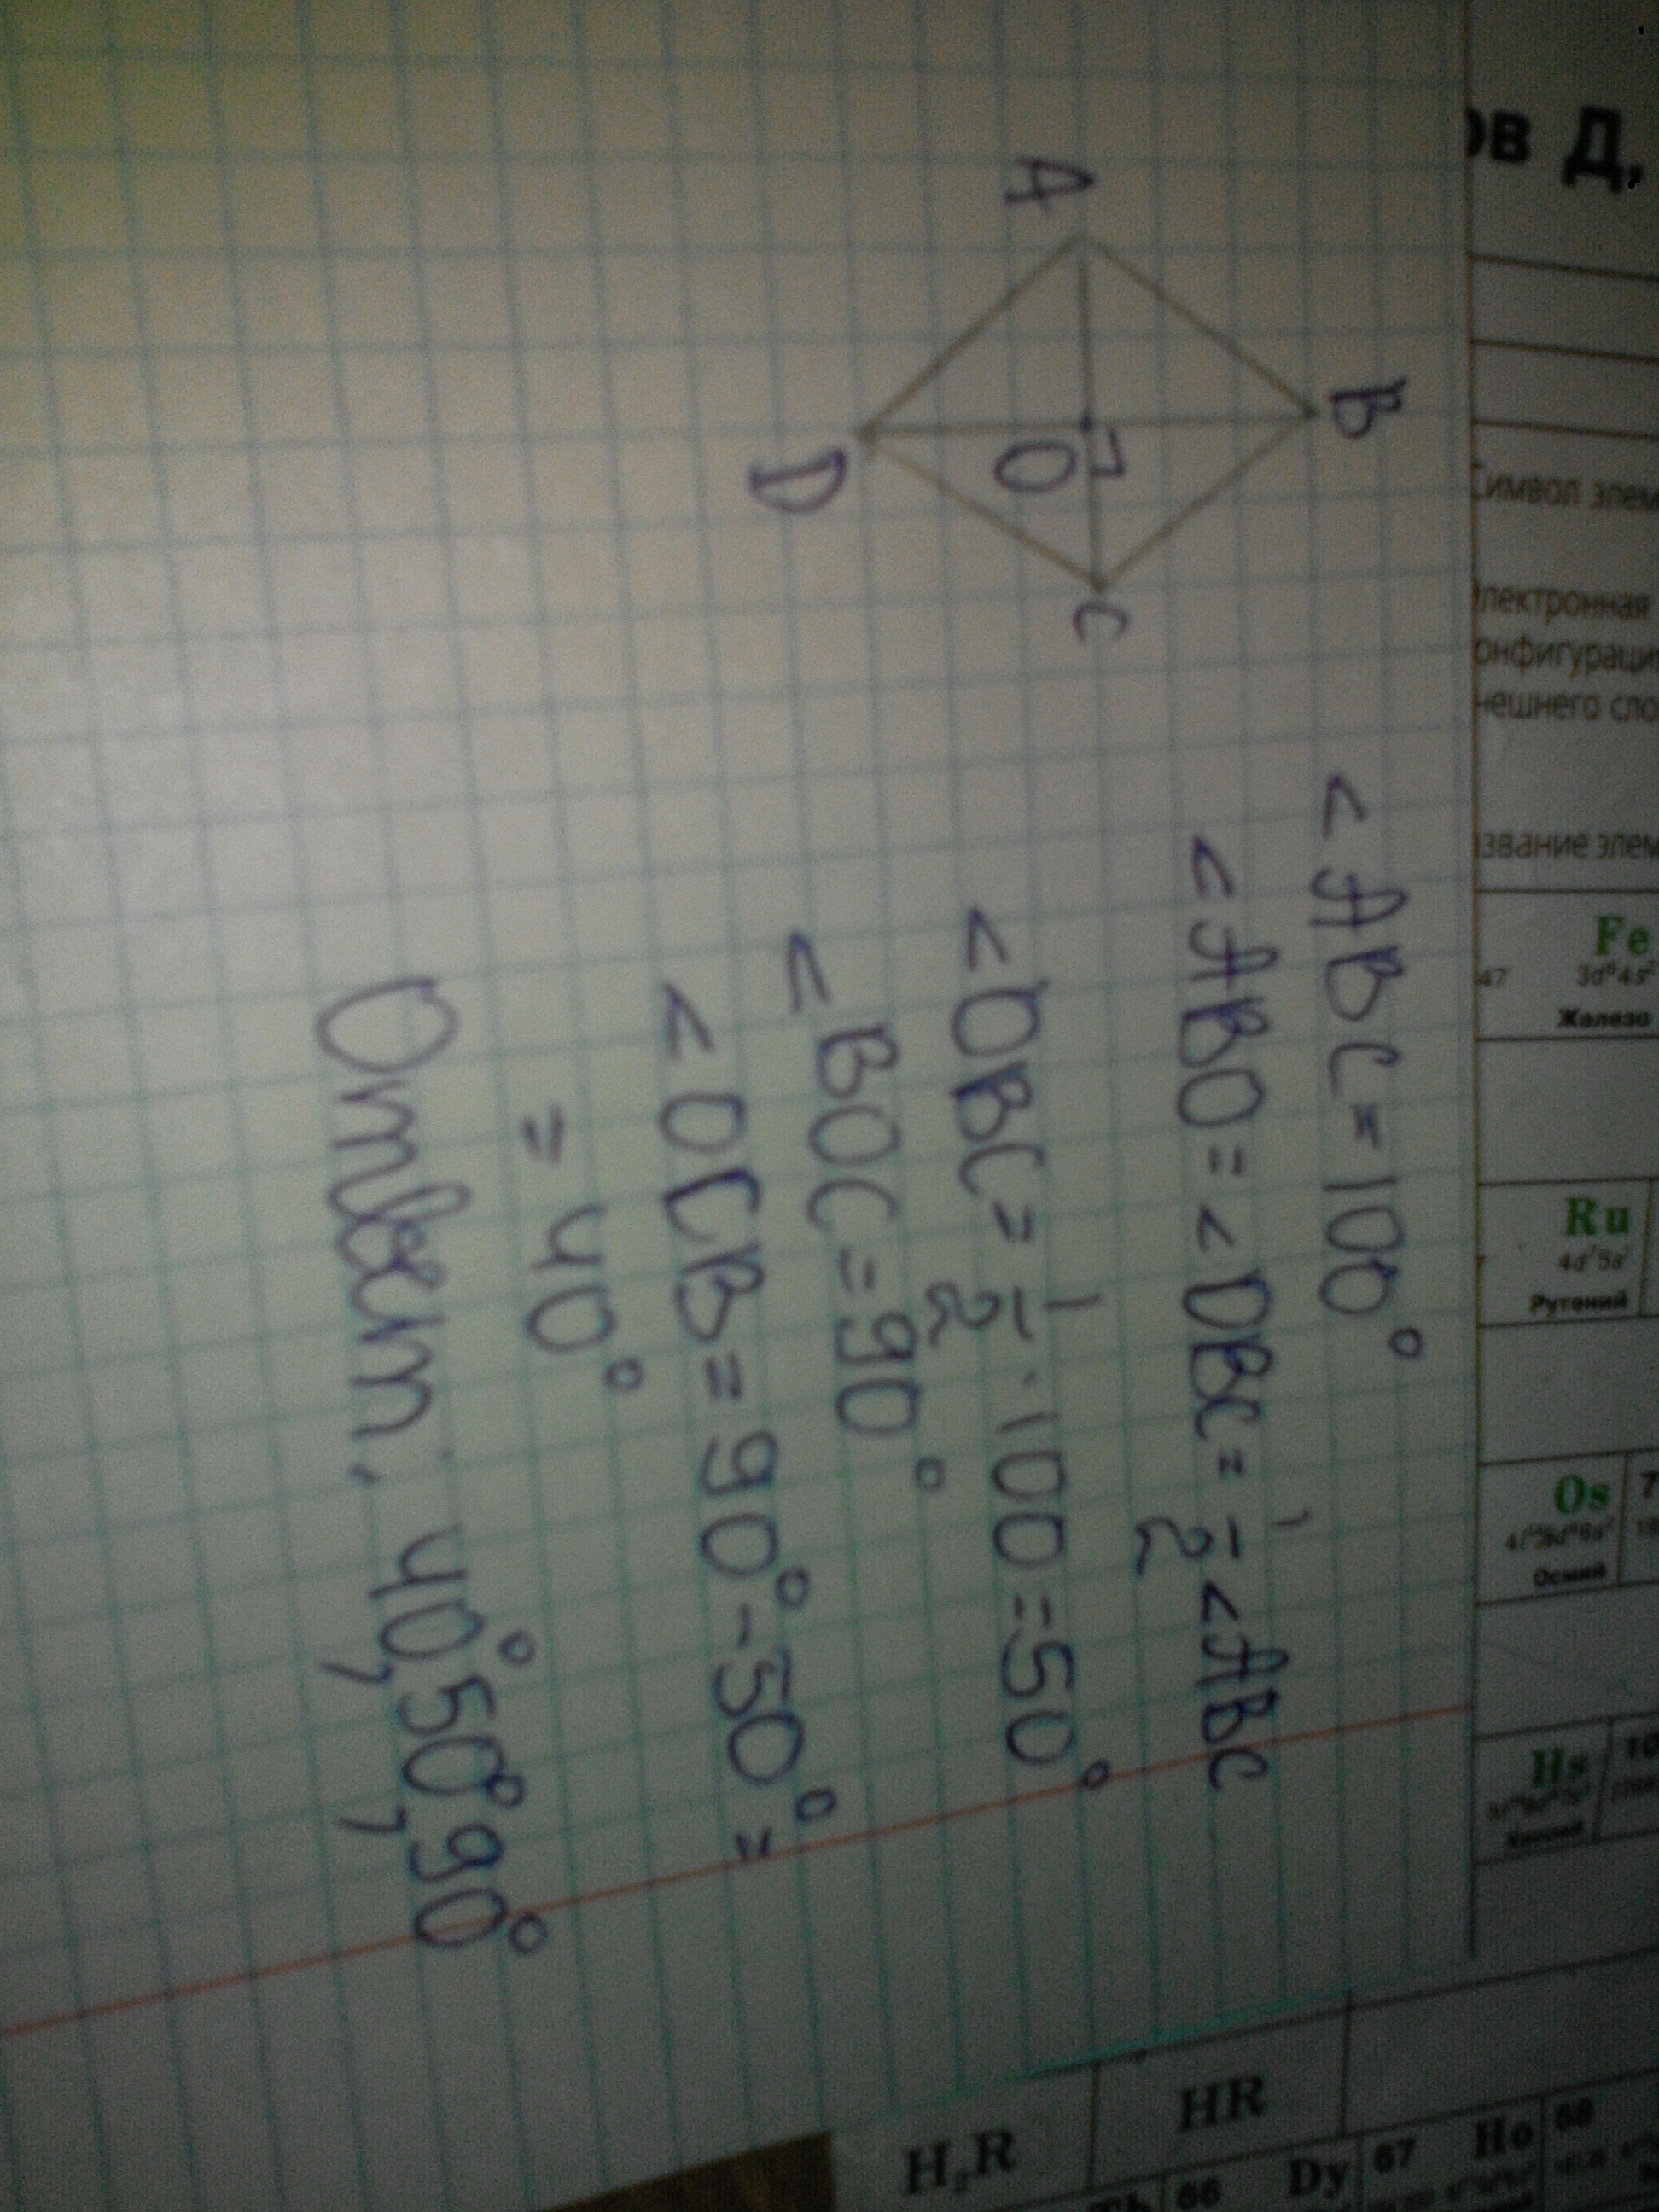 B
A
C
O
D
<ABC=100°
<ABO=<DBC=1/2<ABC
<OBC=1/2·100=50°
<BOC=90°
<OCB=90°-50°=
=40°
Ответ. 40°,50°,90°
ов Д,
Символ элем
Электронная
онфигураци
нешнего сло
азвание элем
47 Fe
3d⁶4s²
Железо
Ru
4d⁷5s¹
Рутений
Os 7
Осмий
Hs 10
HR
H₂R
66 Dy
67 Ho
68